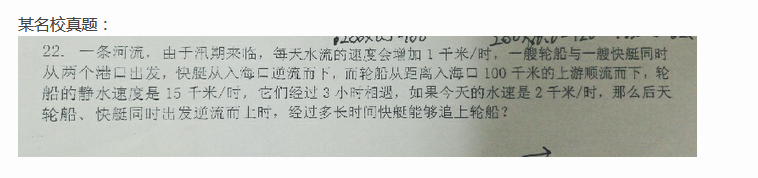 某名校真题：
22. 一条河流，由于汛期来临，每天水流的速度会增加1千米/时，一艘轮船与一艘快艇同时
从两个港口出发，快艇从入海口逆流而下，而轮船从距离入海口100千米的上游顺流而下，轮
船的静水速度是15千米/时，它们经过3小时相遇，如果今天的水速是2千米/时，那么后天
轮船、快艇同时出发逆流而上时，经过多长时间快艇能够追上轮船？